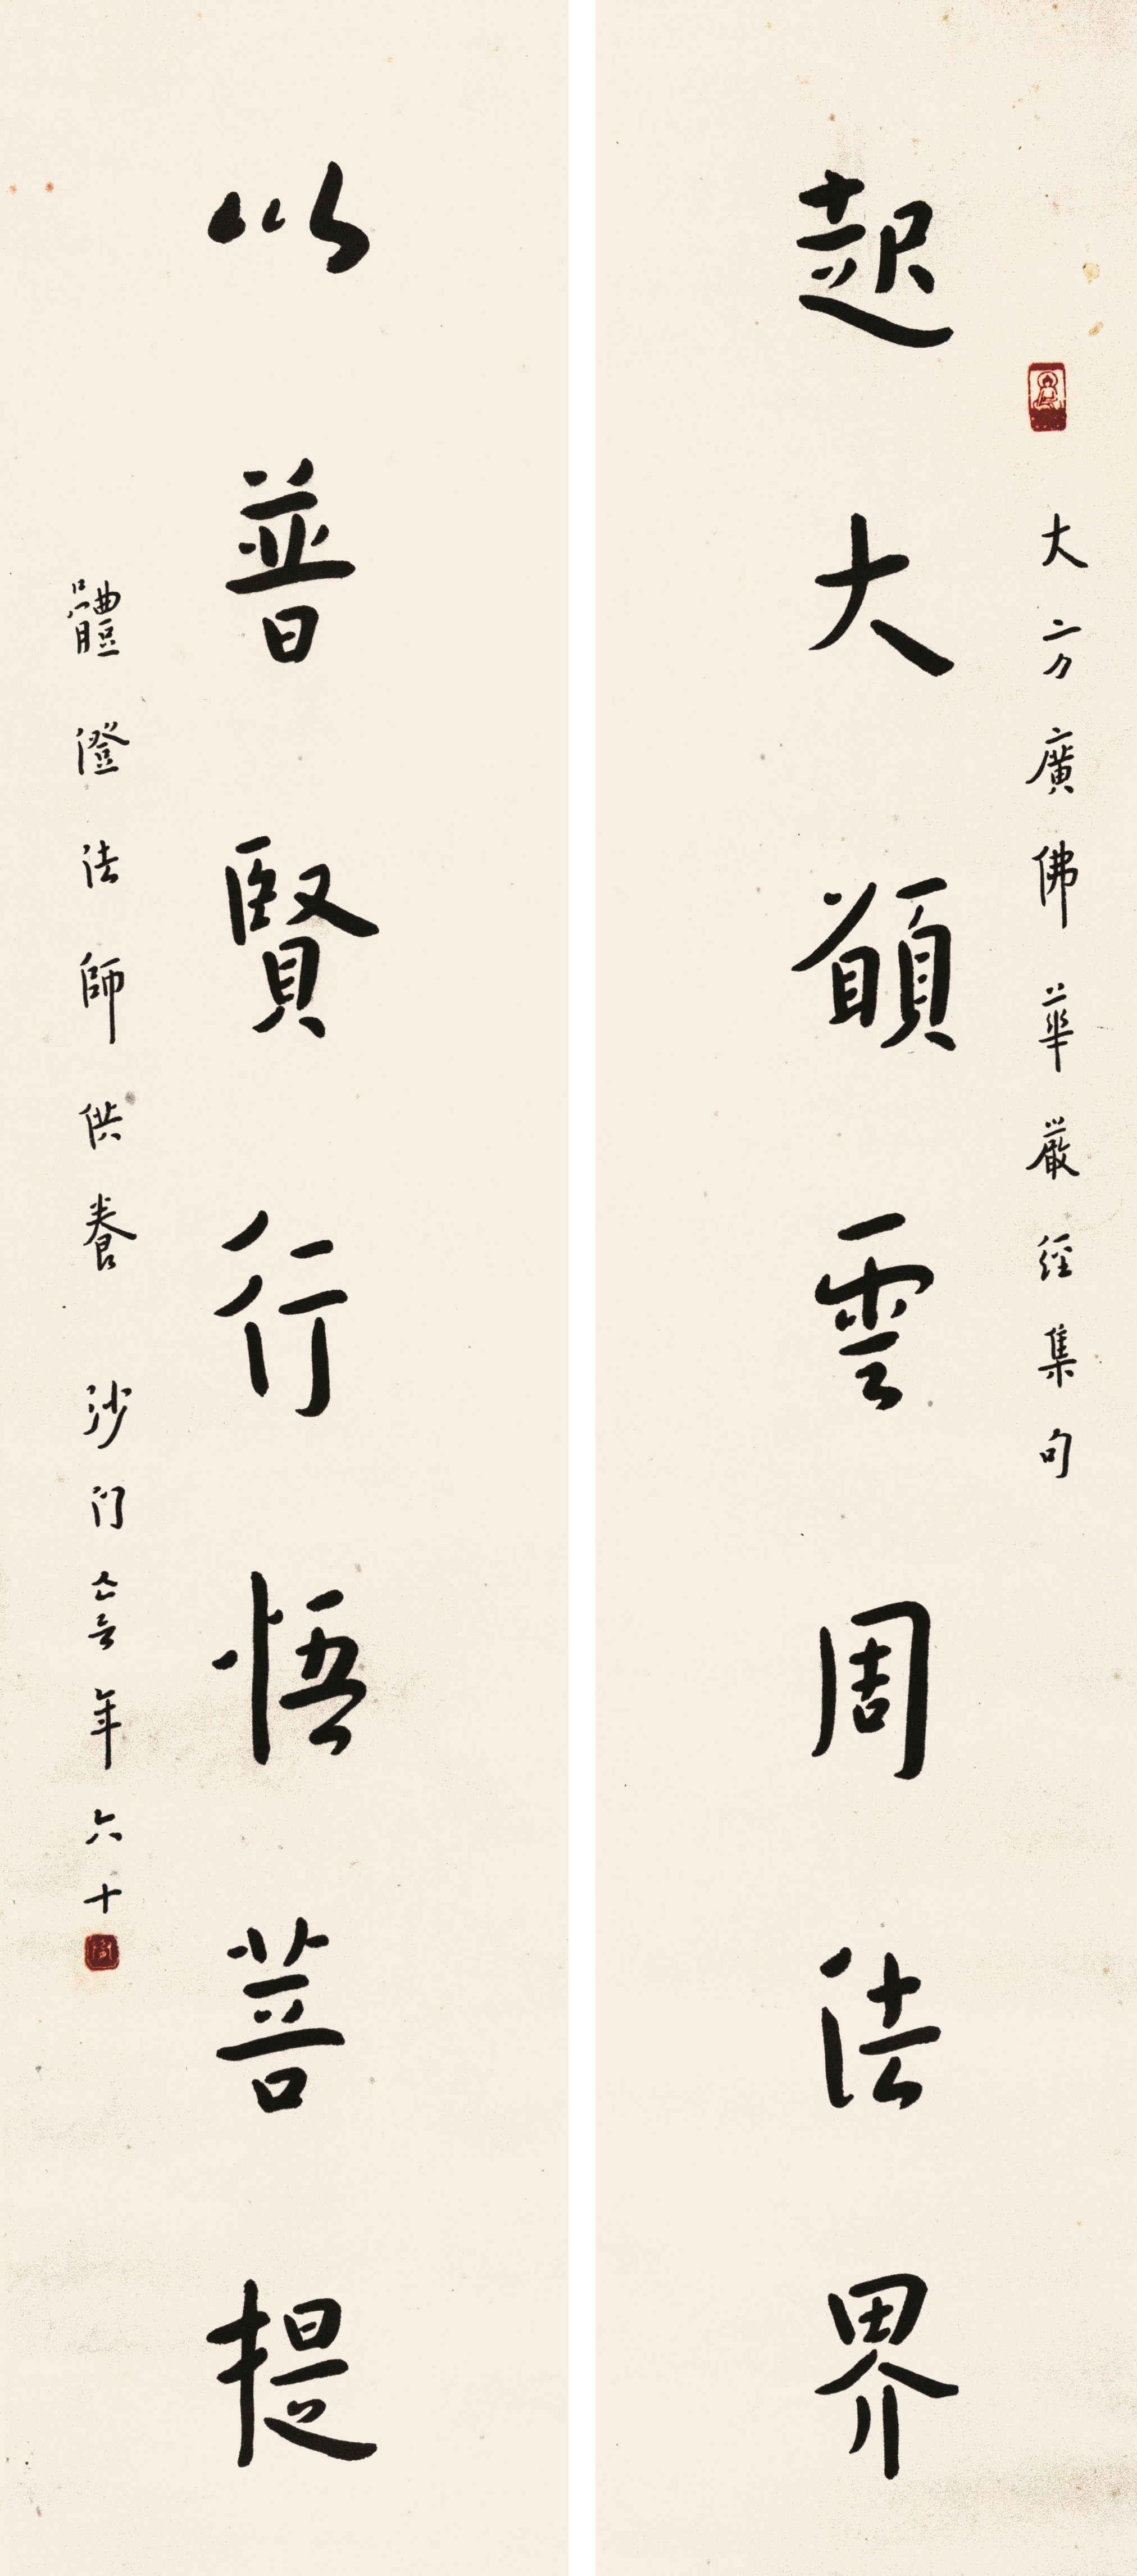 大方廣佛華嚴經集句
起大願雲周法界
以普賢行悟菩提
體澄法師供養 沙门亡言年六十